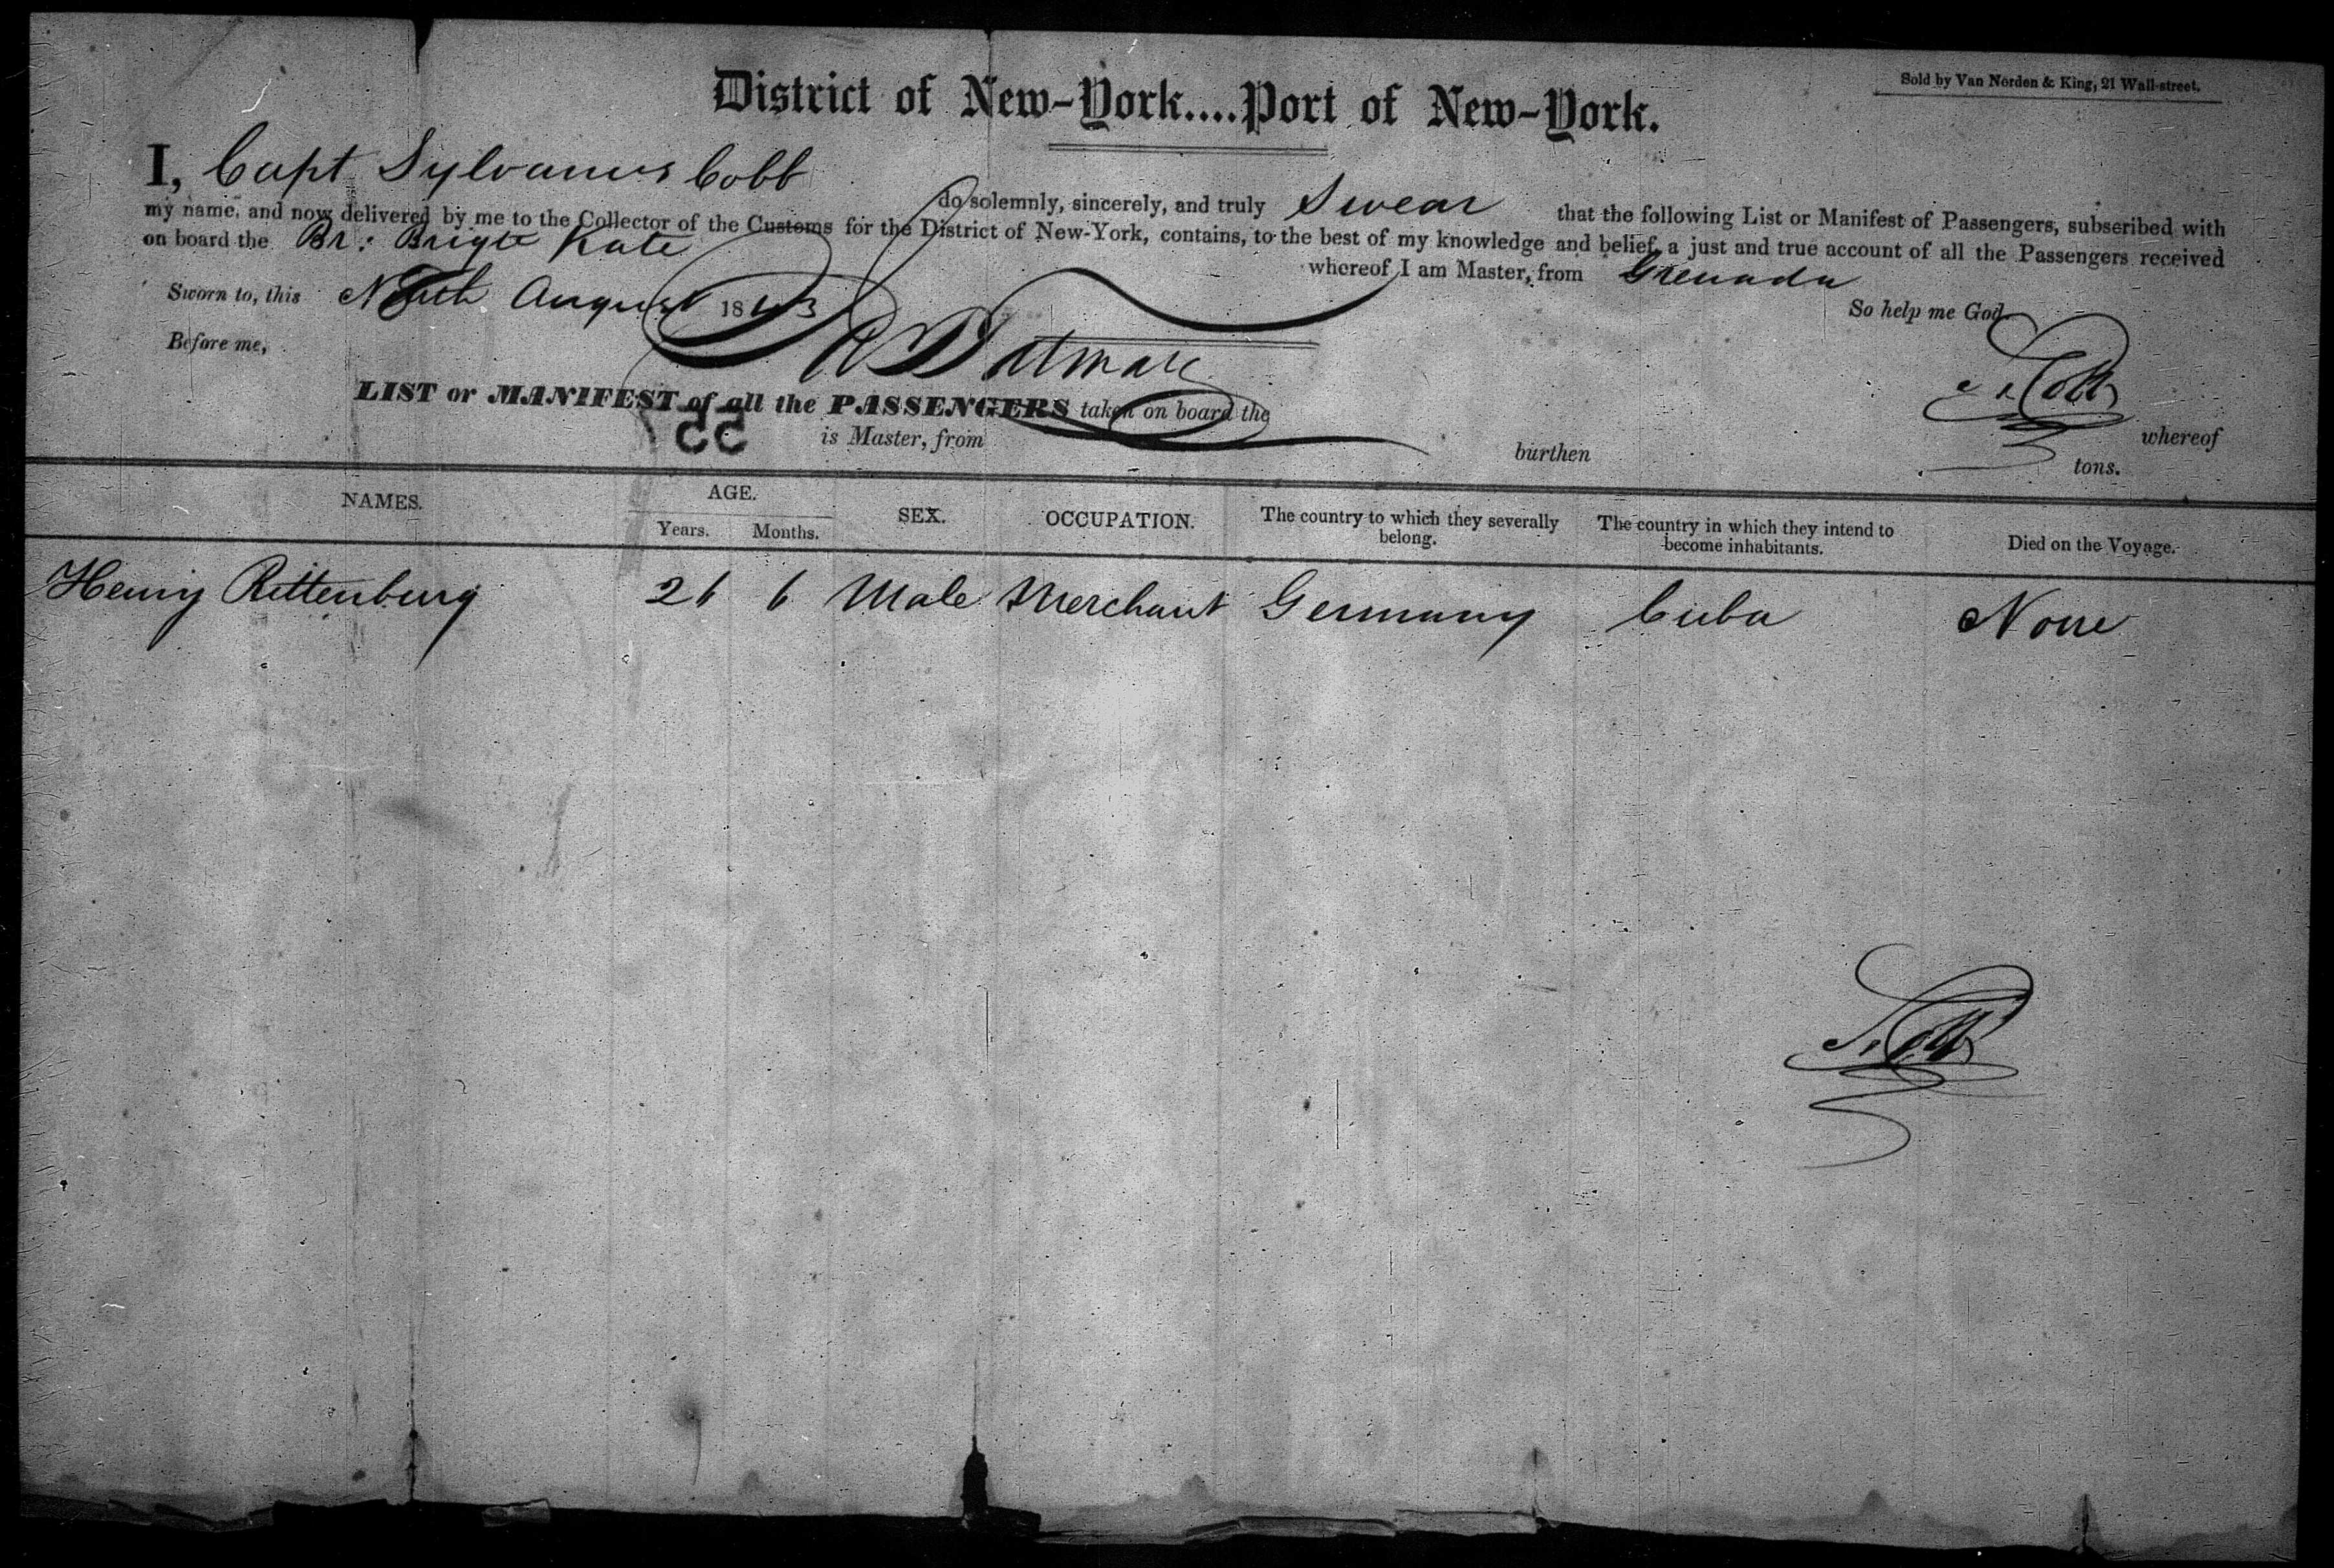 Sold by Van Norden & King, 21 Wall-street.
District of New-York....Port of New-York.
I, Capt Sylvanus Cobb do solemnly, sincerely, and truly Swear that the following List or Manifest of Passengers, subscribed with
my name, and now delivered by me to the Collector of the Customs for the District of New-York, contains, to the best of my knowledge and belief, a just and true account of all the Passengers received
on board the Br: Brigte Kate whereof I am Master, from Grenada
Sworn to, this August 1843 So help me God.
Before me,
S. Cobb
LIST or MANIFEST of all the PASSENGERS taken on board the whereof
is Master, from burthen tons.
55
NAMES. AGE. SEX. OCCUPATION. The country to which they severally belong. The country in which they intend to become inhabitants. Died on the Voyage.
Years. Months.
Henry Rittenburg 26 6 Male Merchant Germany Cuba None
S. Cobb